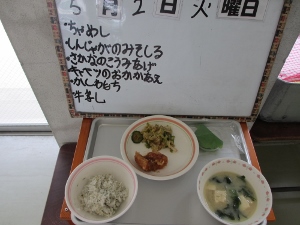 5月2日火曜日
・ちゃめし
・しんじゃがのみそしる
・さかなのこうみあげ
・キャベツのおかかあえ
・かしわもち
・牛乳